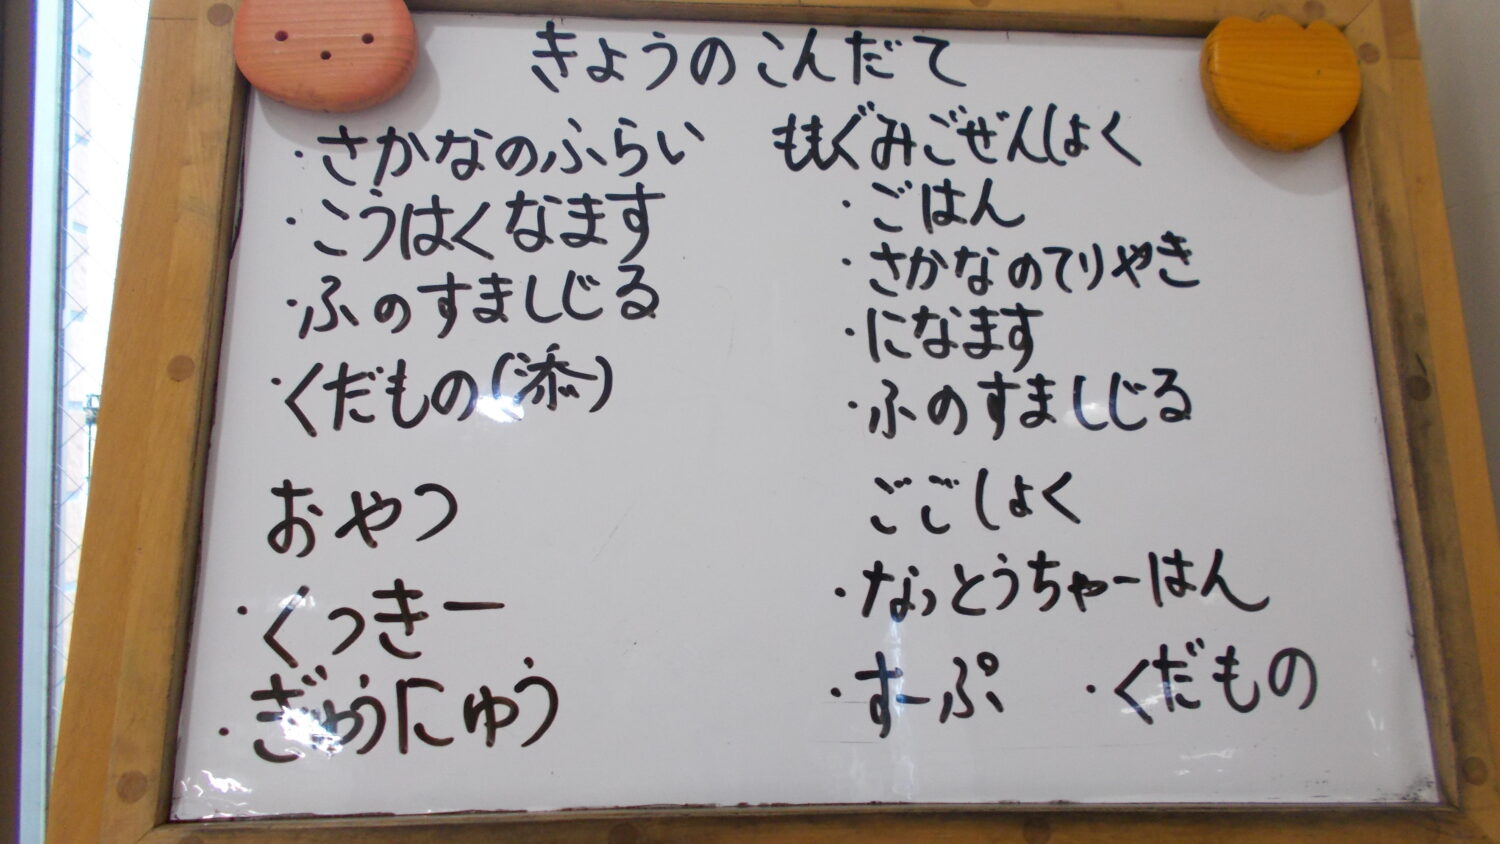 きょうのこんだて
・さかなのふらい
・こうはくなます
・ふのすましじる
・くだもの(添)
おやつ
・くっきー
・ぎゅうにゅう
ももぐみごぜんしょく
・ごはん
・さかなのてりやき
・になます
・ふのすましじる
ごごしょく
・なっとうちゃーはん
・すーぷ ・くだもの